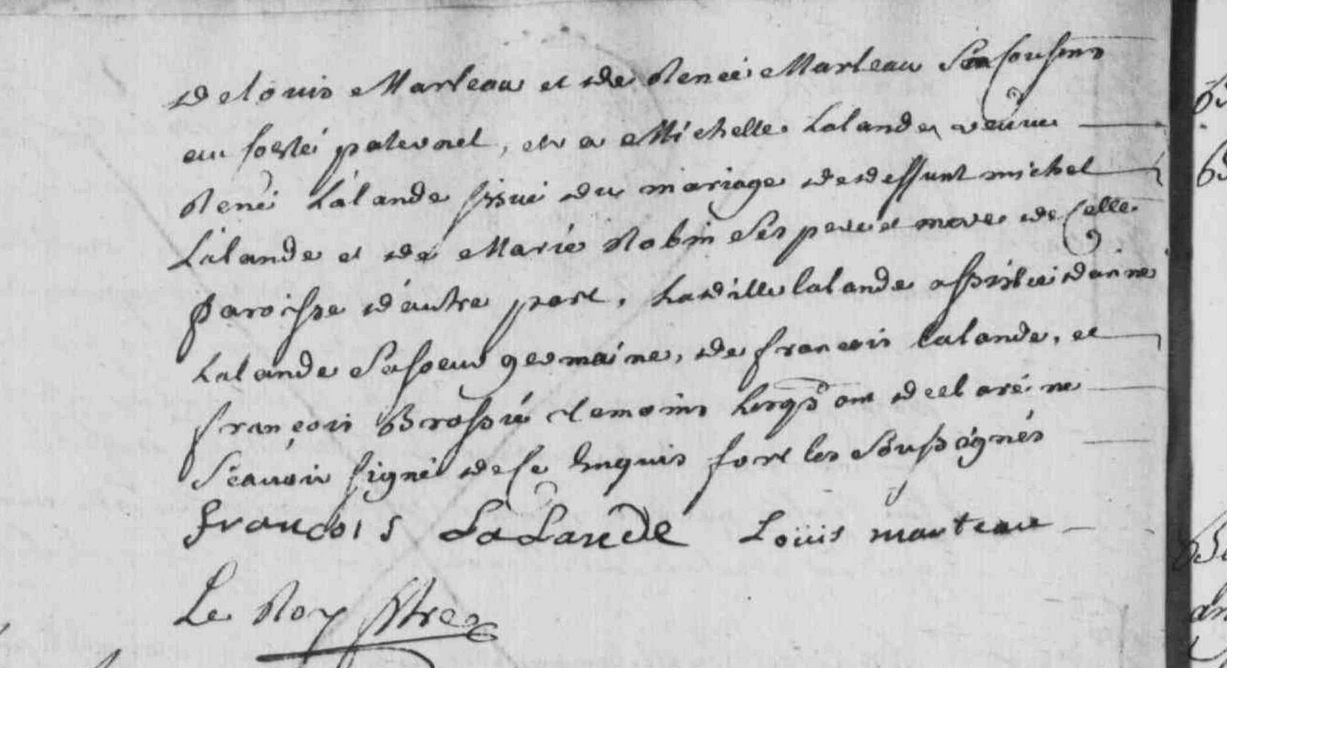 de louis Marteau et de Renée Marteau Ses Cousins
au costé paternel, et a Michelle Lalande, veuve
René Lalande issue du mariage de deffunt michel
Lalande et de Marie Robin Ses pere et mere de Celle
paroisse d'autre part, Ladille lalande assistée d'anne
Lalande Sa soeur germaine, de francois lalande, et
françois Brossié temoins lesqds ont declaré ne
Scavoir signer de ce Enquis fort les Soussignés
francois LaLande Louis marteau
Le Roy ptre